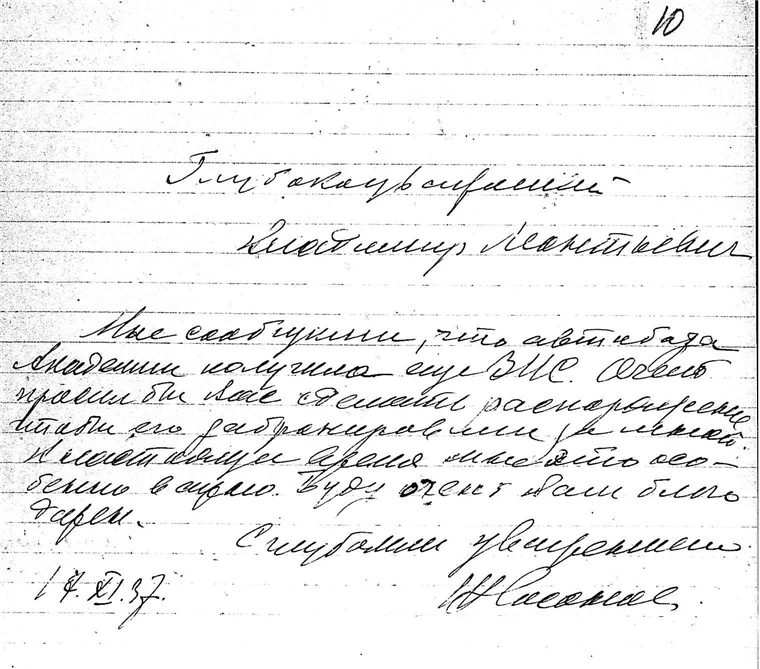 10
Глубокоуважаемый
Владимир Леонтьевич
Мне сообщили, что автобаза
Академии получила еще ЗИС. Очень
просил бы Вас сделать распоряжение
чтобы его забронировали за мной.
В настоящее время мне это осо-
бенно важно. Буду очень Вам благо
дарен.
С глубоким уважением
17.XI.37.